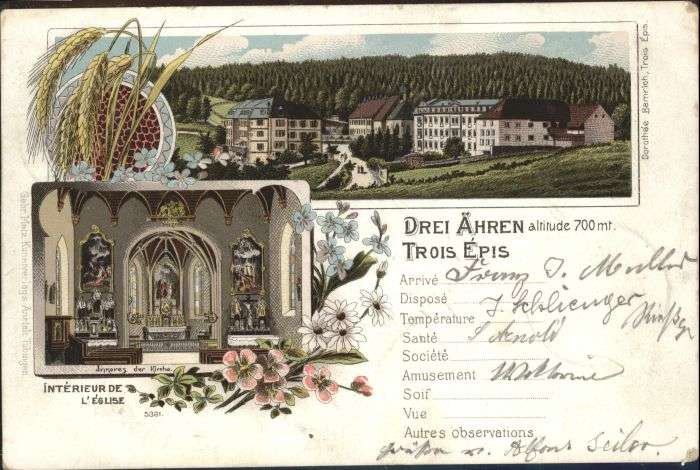 DREI ÄHREN altitude 700 mt.
TROIS ÉPIS
Arrivé Franz J. Muller
Disposé J. Schlienger
Température
Santé J Arnold
Société
Amusement
Soif
Vue
Autres observations
v. Alfons Seiler
Inneres der Kirche.
INTÉRIEUR DE
L'ÉGLISE
5381.
Dorothée Bemrich, Trois Épis.
Gebr. Metz, Kunstverlags-Anstalt, Tübingen.